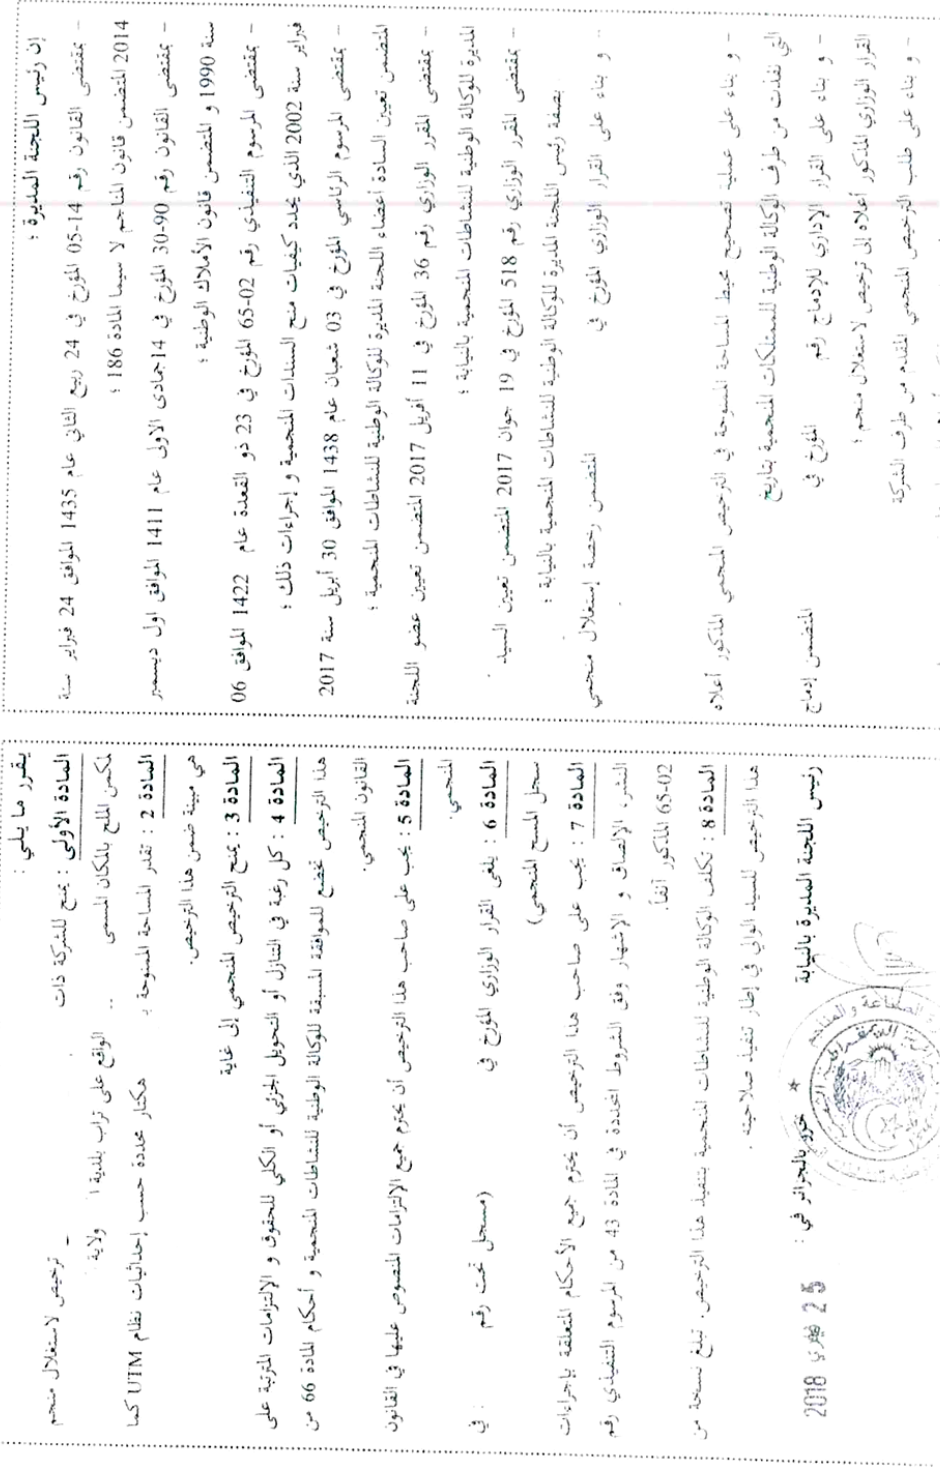 إن رئيس اللجنة المديرة ؛
– بمقتضى القانون رقم 14-05 المؤرخ في 24 ربيع الثاني عام 1435 الموافق 24 فبراير سنة
2014 المتضمن قانون المناجم لا سيما المادة 186 ؛
– بمقتضى القانون رقم 90-30 المؤرخ في 14 جمادى الاولى عام 1411 الموافق اول ديسمبر
سنة 1990 و المتضمن قانون الأملاك الوطنية ؛
– بمقتضى المرسوم التنفيذي رقم 02-65 المؤرخ في 23 ذو القعدة عام 1422 الموافق 06
فبراير سنة 2002 الذي يحدد كيفيات منح السندات المنجمية و إجراءات ذلك ؛
– بمقتضى المرسوم الرئاسي المؤرخ في 03 شعبان عام 1438 الموافق 30 أبريل سنة 2017
المتضمن تعيين السادة أعضاء اللجنة المديرة للوكالة الوطنية للنشاطات المنجمية ؛
– بمقتضى المقرر الوزاري رقم 36 المؤرخ في 11 أفريل 2017 المتضمن تعيين عضو اللجنة
المديرة للوكالة الوطنية للنشاطات المنجمية بالنيابة ؛
– بمقتضى المقرر الوزاري رقم 518 المؤرخ في 19 جوان 2017 المتضمن تعيين السيد
بصفة رئيس اللجنة المديرة للوكالة الوطنية للنشاطات المنجمية بالنيابة ؛
– و بناء على القرار الوزاري المؤرخ في المتضمن رخصة إستغلال منجمي
– و بناء على عملية تصحيح محيط المساحة الممنوحة في الترخيص المنجمي المذكور أعلاه
التي نفذت من طرف الوكالة الوطنية للممتلكات المنجمية بتاريخ
– و بناء على القرار الإداري للإدماج رقم المؤرخ في المتضمن إدماج
القرار الوزاري المذكور أعلاه إلى ترخيص لاستغلال منجم ؛
– و بناء على طلب الترخيص المنجمي المقدم من طرف الشركة
يقرر ما يلي :
المادة الأولى : يمنح للشركة ذات ترخيص لاستغلال منجم
الملح بالمكان المسمى الواقع على تراب بلدية ولاية
المادة 2 : تقدر المساحة الممنوحة بـ هكتار محددة حسب إحداثيات نظام UTM كما
هي مبينة ضمن هذا الترخيص.
المادة 3 : يمنح الترخيص المنجمي إلى غاية
المادة 4 : كل رغبة في التنازل أو التحويل الجزئي أو الكلي للحقوق و الإلتزامات المترتبة على
هذا الترخيص تخضع للموافقة المسبقة للوكالة الوطنية للنشاطات المنجمية و أحكام المادة 66 من
القانون المنجمي.
المادة 5 : يجب على صاحب هذا الترخيص أن يحترم جميع الإلتزامات المنصوص عليها في القانون
المنجمي.
المادة 6 : يلغى القرار الوزاري المؤرخ في (مسجل تحت رقم : في
سجل المسح المنجمي)
المادة 7 : يجب على صاحب هذا الترخيص أن يحترم جميع الأحكام المتعلقة بإجراءات
النشر، الإلصاق و الإشهار وفق الشروط المحددة في المادة 43 من المرسوم التنفيذي رقم
02-65 المذكور آنفا.
المادة 8 : تكلف الوكالة الوطنية للنشاطات المنجمية بتنفيذ هذا الترخيص. تبلغ نسخة من
هذا الترخيص للسيد الوالي في إطار تنفيذ صلاحيته.
رئيس اللجنة المديرة بالنيابة
حرر بالجزائر في : 25 فيفري 2018